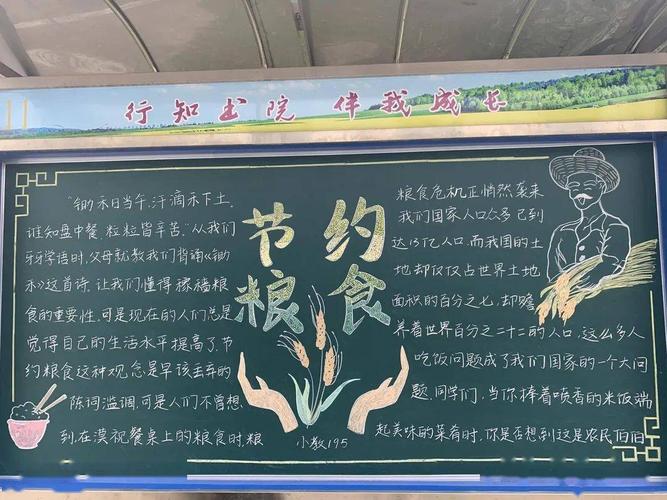 11
行知书院 伴我成长
节约
粮食
"锄禾日当午,汗滴禾下土,
谁知盘中餐,粒粒皆辛苦."从我们
牙牙学语时,父母就教我们背诵《锄
禾》这首诗,让我们懂得
食的重要性.可是现在的人们总是
觉得自己的生活水平提高了,节
约粮食这种观念是早该丢弃的
陈词滥调.可是人们不曾想
到,在漠视餐桌上的粮食时,粮
粮食危机正悄然袭来
我们国家人口众多已到
达13亿人口.而我国的土
地却仅仅占世界土地
面积的百分之七,却赡
养着世界百分之二十二的人口,这么多人
吃饭问题成了我们国家的一个大问
题.同学们,当你捧着喷香的米饭,端
起美味的菜肴时,你是否想到这是农民伯伯
小教195